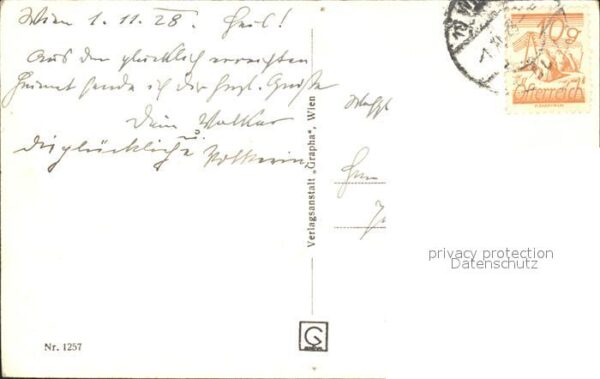 Wien 1.11.28. Heil!
Aus der glücklich erreichten
Heimat sende ich dir herzl. Grüße
Dein Volker
u
die glückliche Volkerin
Verlagsanstalt „Grapha", Wien
10g
Österreich
privacy protection
Datenschutz
G
Nr. 1257